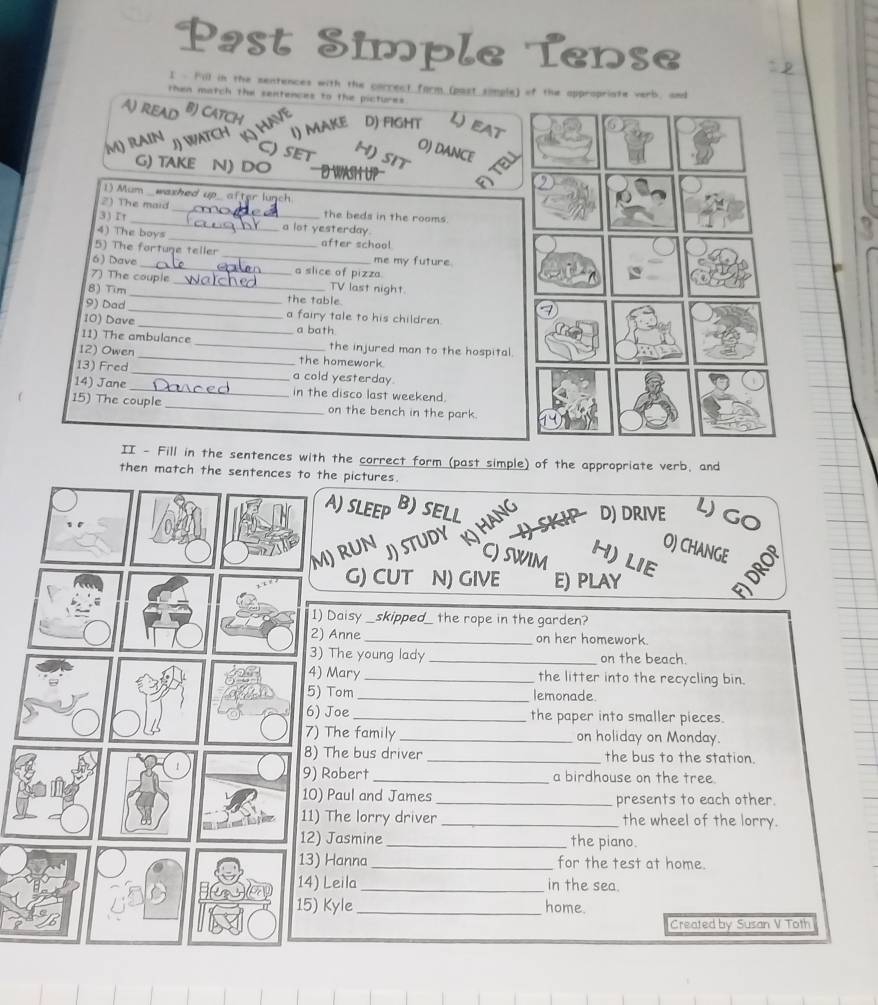 Past Simple Tense
I - Fill in the sentences with the correct form (past simple) of the appropriate verb, and
then match the sentences to the pictures.
A) READ B) CATCH K) HAVE I) MAKE D) FIGHT L) EAT
M) RAIN J) WATCH C) SET H) SIT O) DANCE F) TELL
G) TAKE N) DO E) WASH UP
1) Mum _washed up_ after lunch.
2) The maid ________ the beds in the rooms.
3) It caught a lot yesterday.
4) The boys ________ after school.
5) The fortune teller ________ me my future.
6) Dave ate eaten a slice of pizza.
7) The couple watched TV last night.
8) Tim ________ the table.
9) Dad ________ a fairy tale to his children.
10) Dave ________ a bath.
11) The ambulance ________ the injured man to the hospital.
12) Owen ________ the homework.
13) Fred ________ a cold yesterday.
14) Jane Danced in the disco last weekend.
15) The couple ________ on the bench in the park.
2
7
14
1
II - Fill in the sentences with the correct form (past simple) of the appropriate verb, and
then match the sentences to the pictures.
A) SLEEP B) SELL K) HANG I) SKIP D) DRIVE L) GO
M) RUN J) STUDY C) SWIM H) LIE O) CHANGE F) DROP
G) CUT N) GIVE E) PLAY
1) Daisy _skipped_ the rope in the garden?
2) Anne ________ on her homework.
3) The young lady ________ on the beach.
4) Mary ________ the litter into the recycling bin.
5) Tom ________ lemonade.
6) Joe ________ the paper into smaller pieces.
7) The family ________ on holiday on Monday.
8) The bus driver ________ the bus to the station.
9) Robert ________ a birdhouse on the tree.
10) Paul and James ________ presents to each other.
11) The lorry driver ________ the wheel of the lorry.
12) Jasmine ________ the piano.
13) Hanna ________ for the test at home.
14) Leila ________ in the sea.
15) Kyle ________ home.
1
Created by Susan V Toth